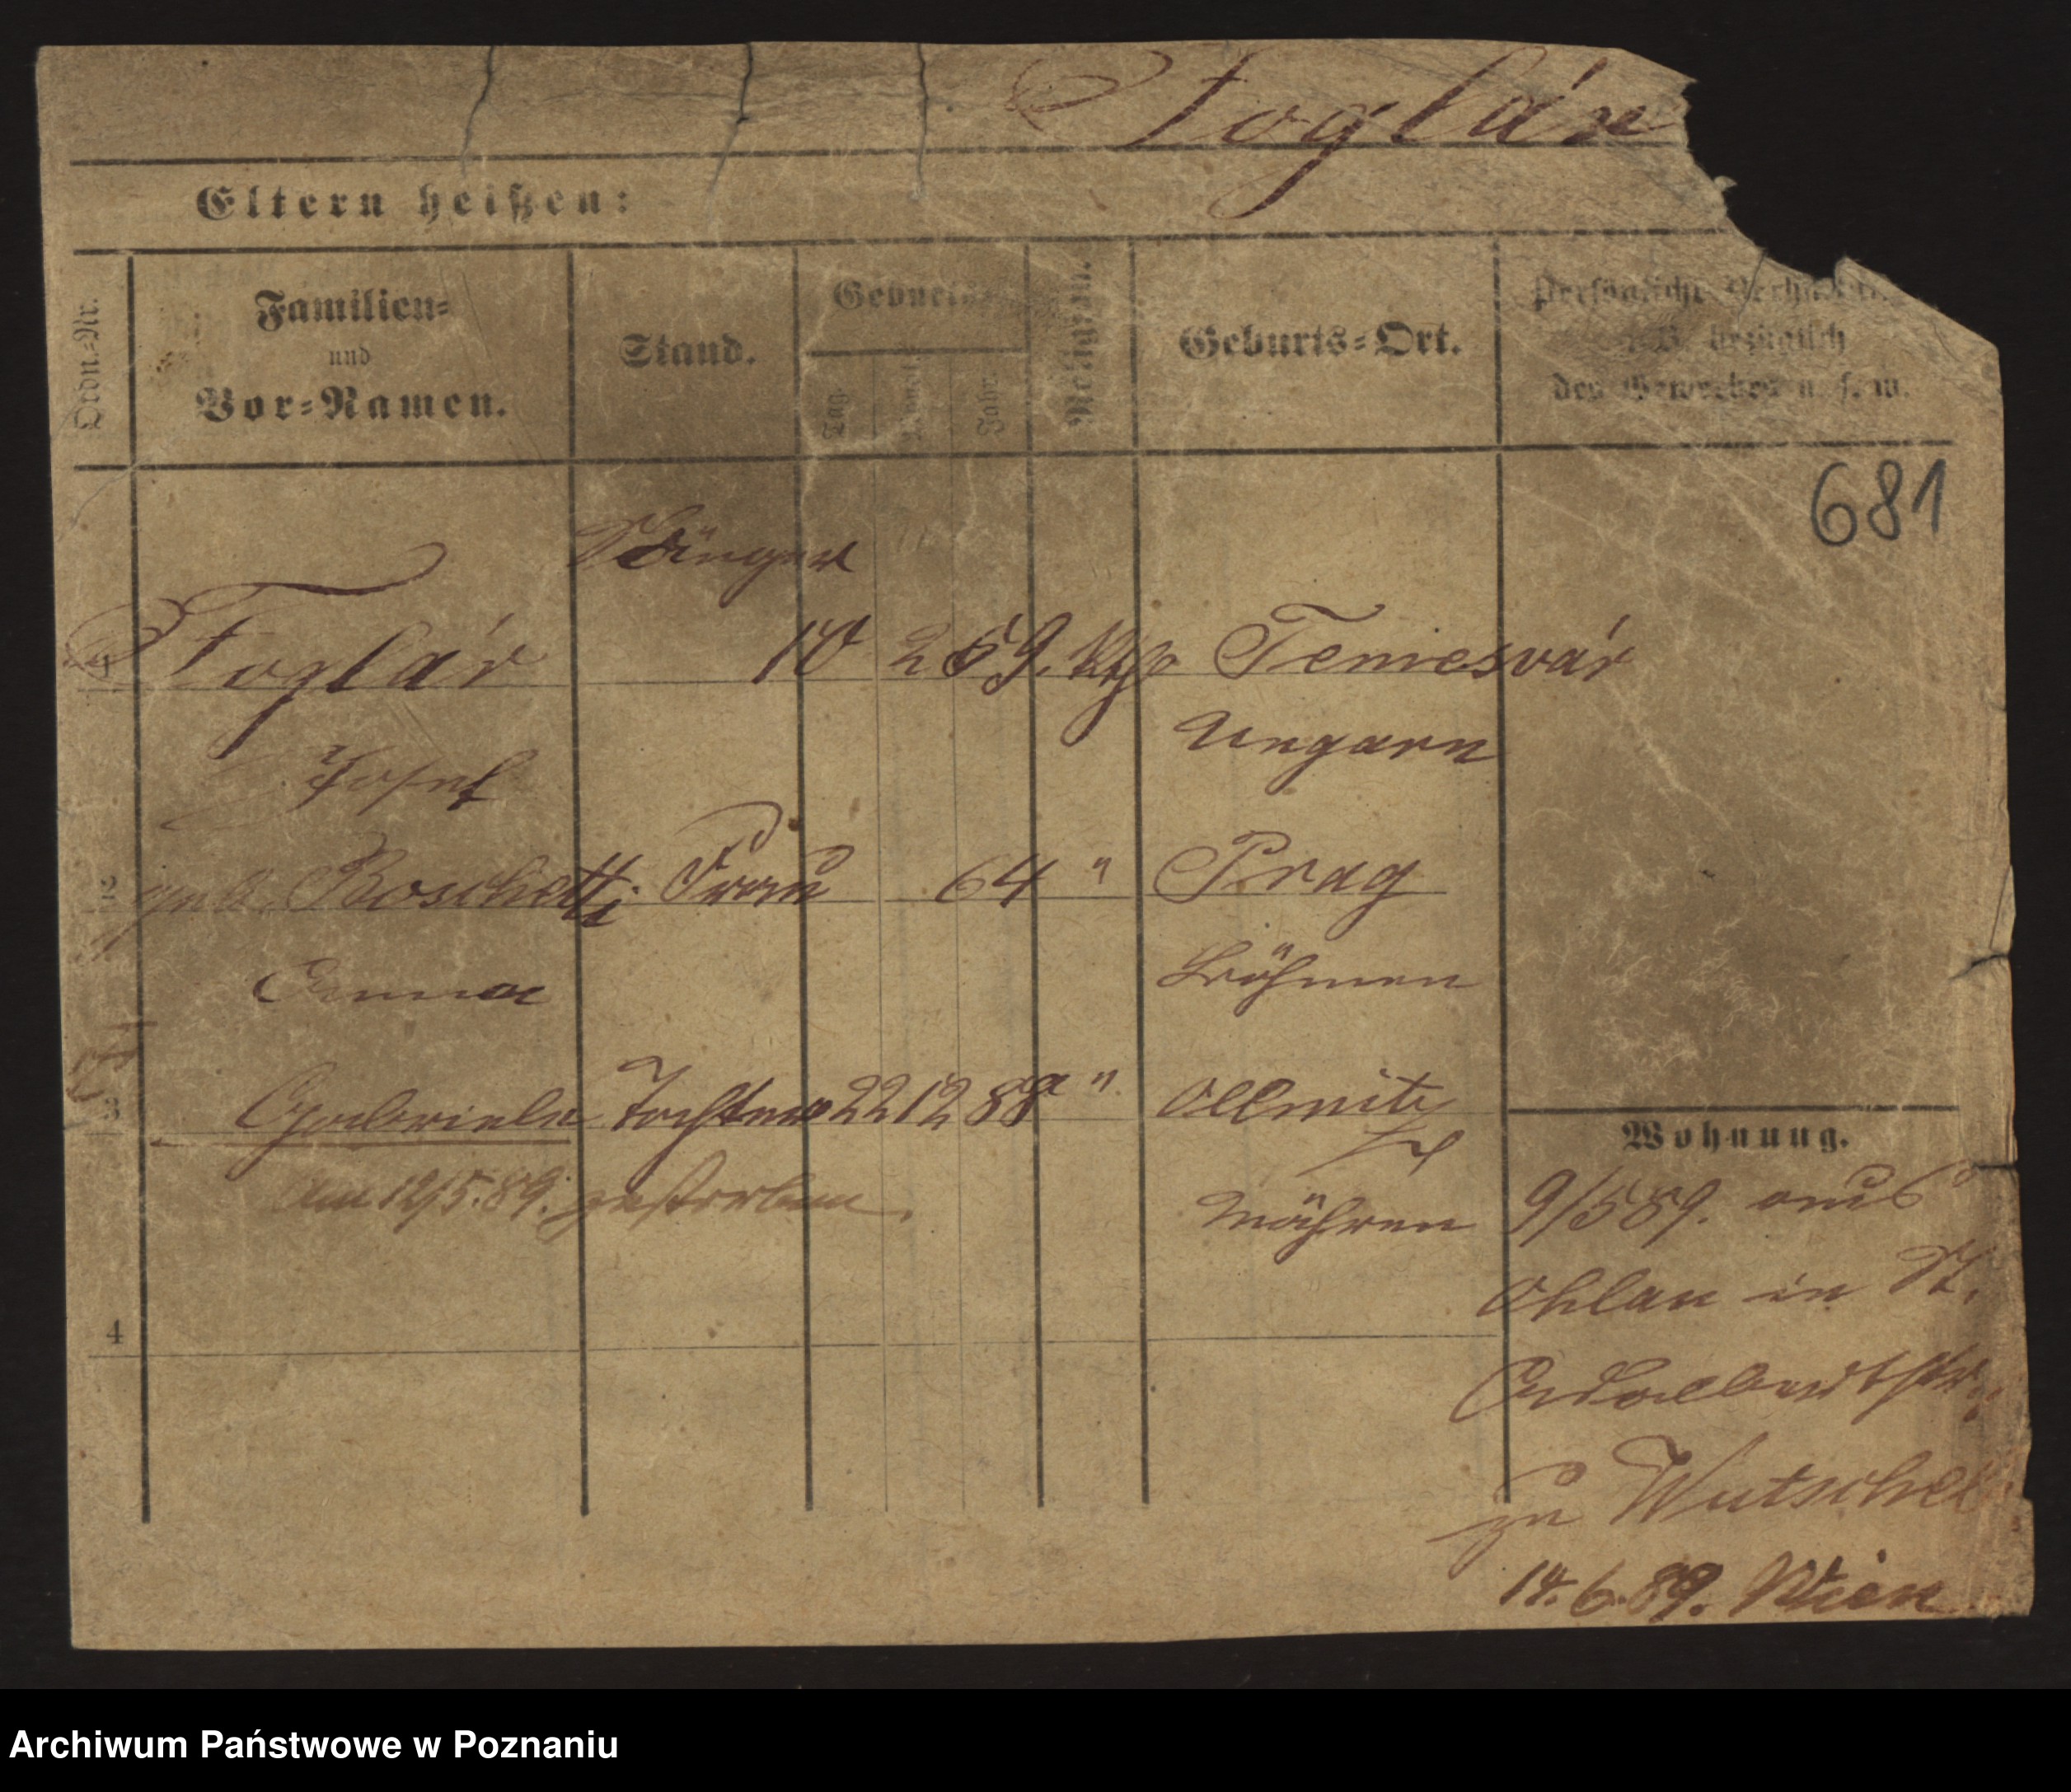 Foglár
Eltern heißen:
Ordn.-Nr.
Familien-
und
Vor-Namen.
Stand.
Geburts-
Tag.
Monat.
Jahr.
Religion.
Geburts-Ort.
Persönliche
bezüglich
des Gewerbes u. s. w.
681
Sänger
1 Foglár 10 2 59. Kth Temesvár
Josef Ungarn
2 geb. Boschetti Frau 64 " Prag
Emma Böhmen
3 Gabriele Tochter 22 12 88 " Ollmitz
Wohnung.
am 12/5.89. gestorben. Mähren
9/5 89. aus
Ohlau in St.
Adalbertstr.
zu Wutschel
14.6.89. Wien
4
Archiwum Państwowe w Poznaniu